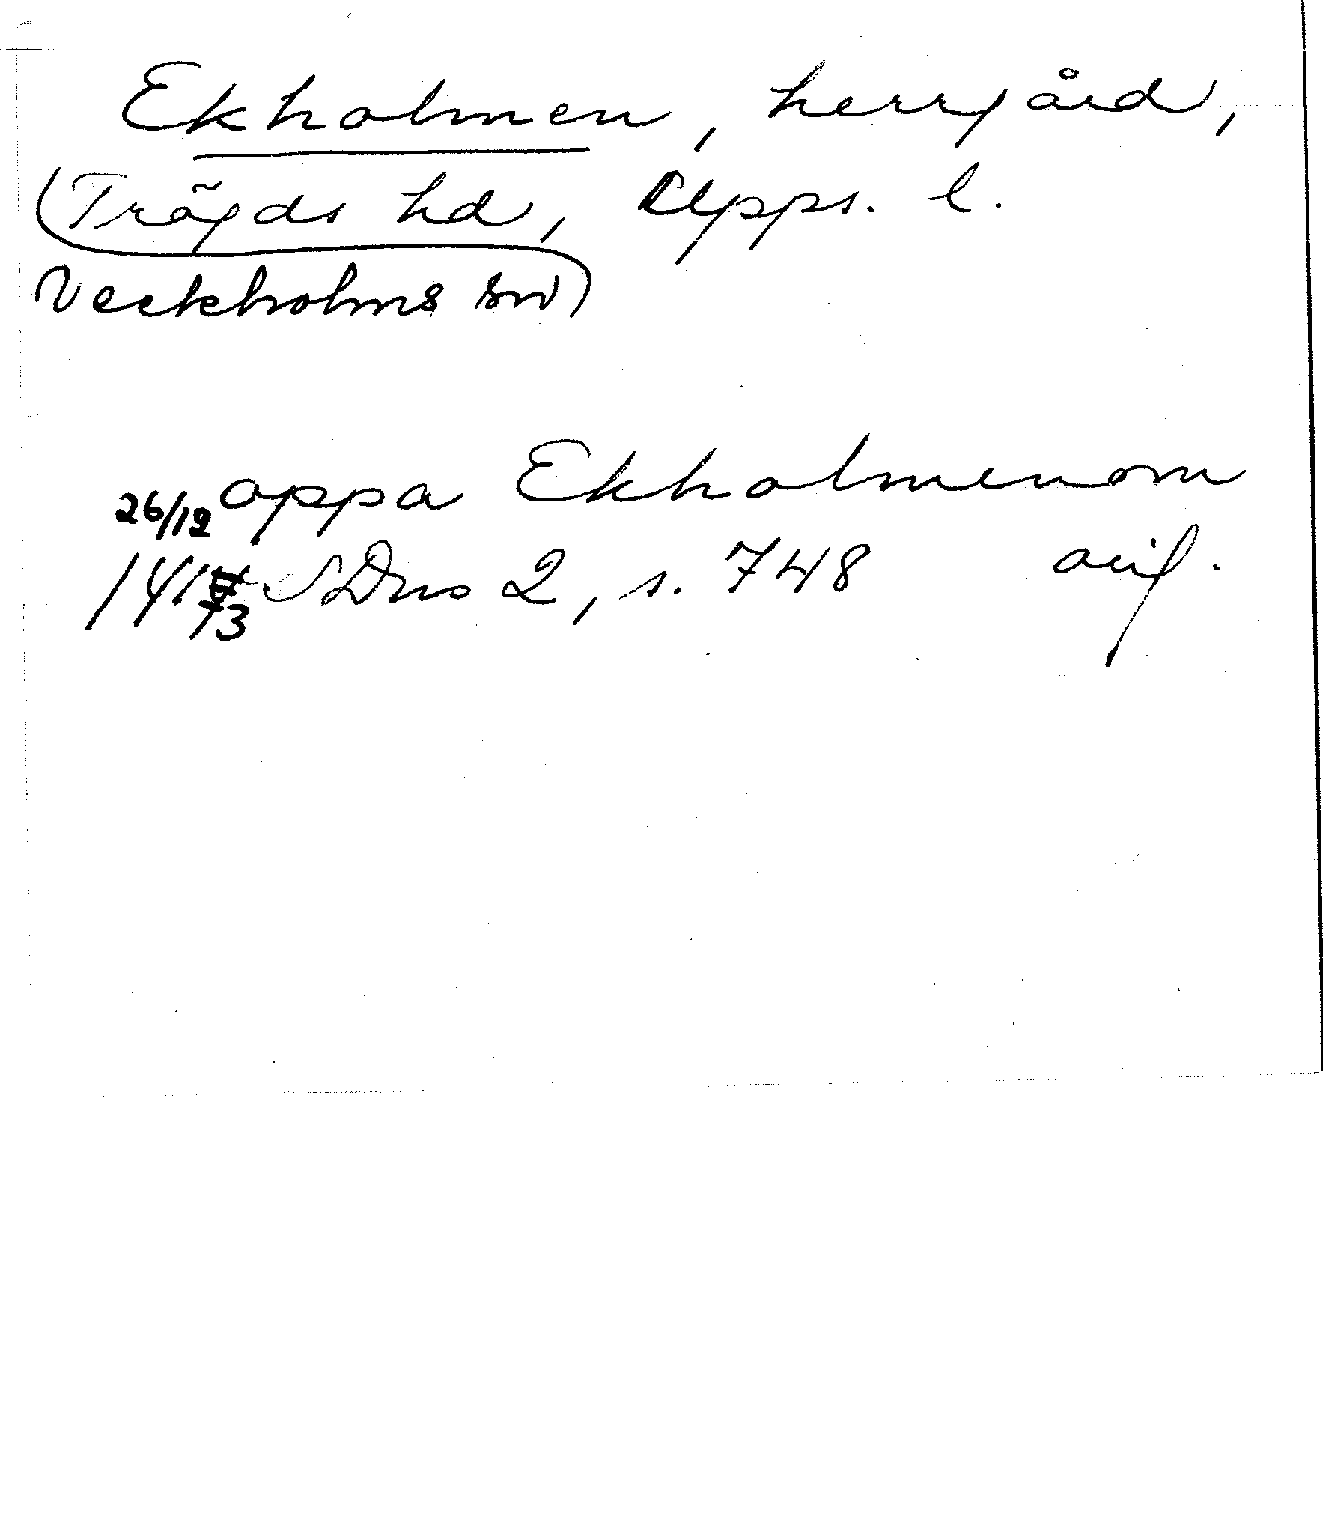 Ekholmen, herrgård,
(Trögds hd, Upps. l.
Veckholms sn)
26/12 oppa Ekholmenom
141 13 SDns 2, s. 748 orig.